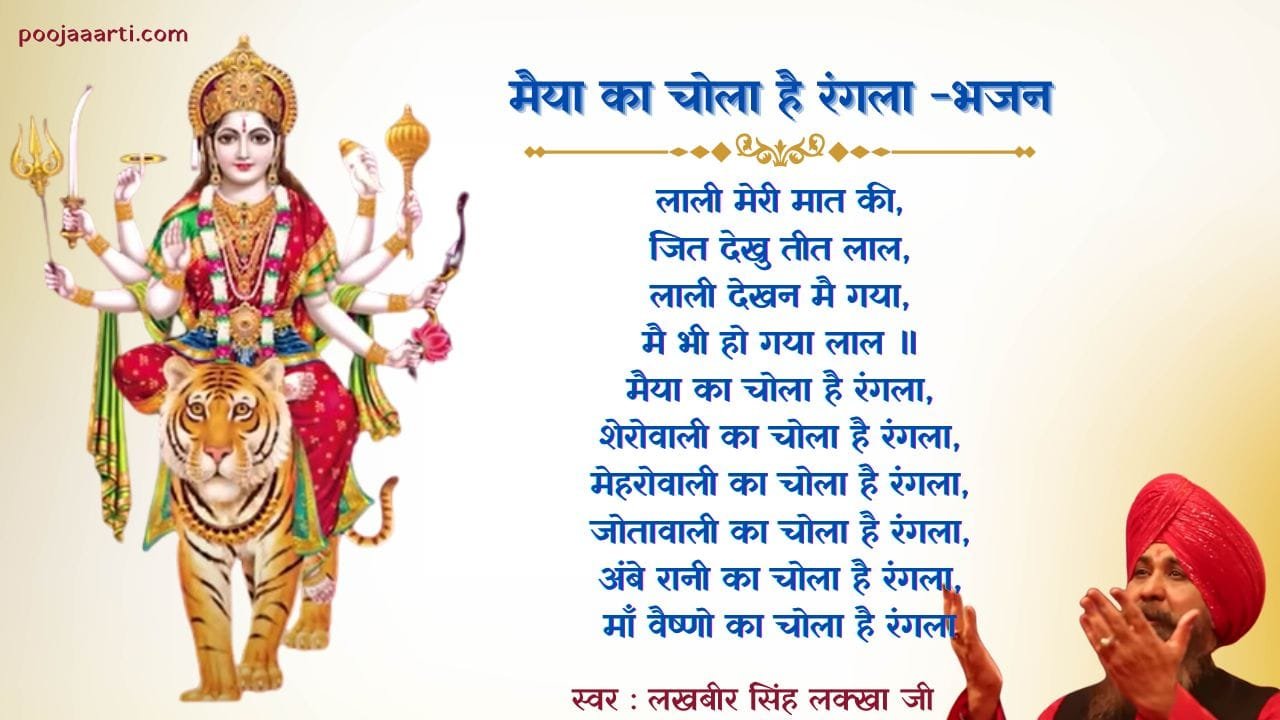 poojaaarti.com
मैया का चोला है रंगला -भजन
लाली मेरी मात की,
जित देखु तीत लाल,
लाली देखन मै गया,
मै भी हो गया लाल ॥
मैया का चोला है रंगला,
शेरोवाली का चोला है रंगला,
मेहरोवाली का चोला है रंगला,
जोतावाली का चोला है रंगला,
अंबे रानी का चोला है रंगला,
माँ वैष्णो का चोला है रंगला
स्वर : लखबीर सिंह लक्खा जी